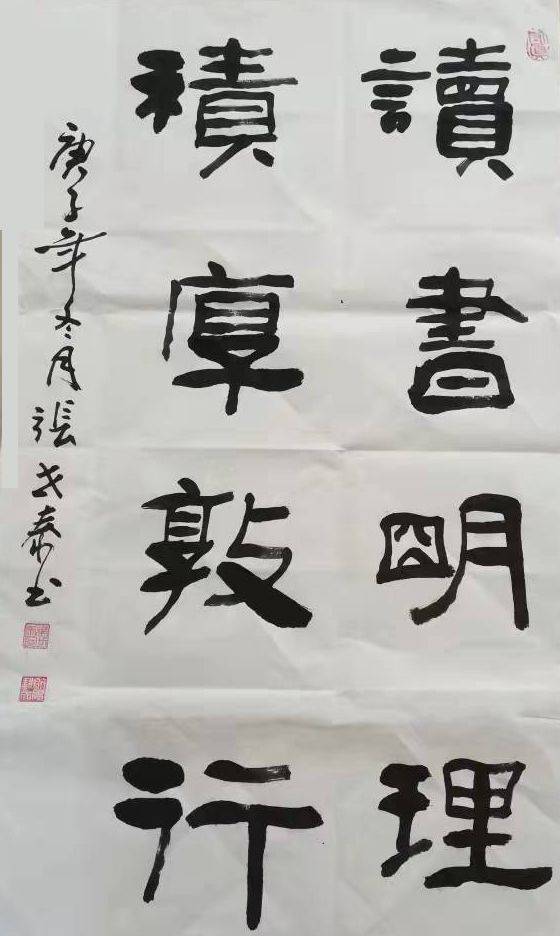 讀書明理
積厚敦行
庚子年冬月張世泰书